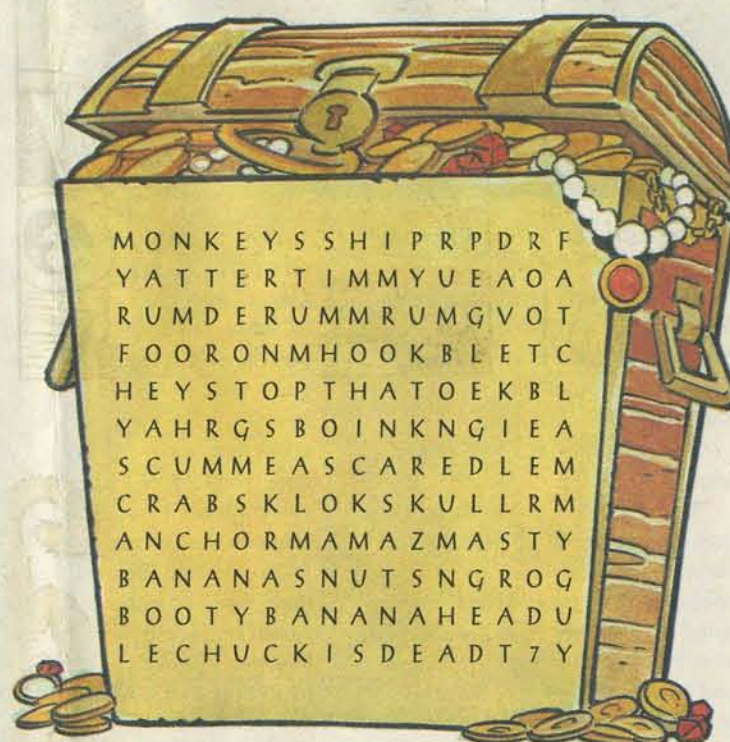 M O N K E Y S S H I P R P D R F
Y A T T E R T I M M Y U E A O A
R U M D E R U M M R U M G V O T
F O O R O N M H O O K B L E T C
H E Y S T O P T H A T O E K B L
Y A H R G S B O I N K N G I E A
S C U M M E A S C A R E D L E M
C R A B S K L O K S K U L L R M
A N C H O R M A M A Z M A S T Y
B A N A N A S N U T S N G R O G
B O O T Y B A N A N A H E A D U
L E C H U C K I S D E A D T 7 Y